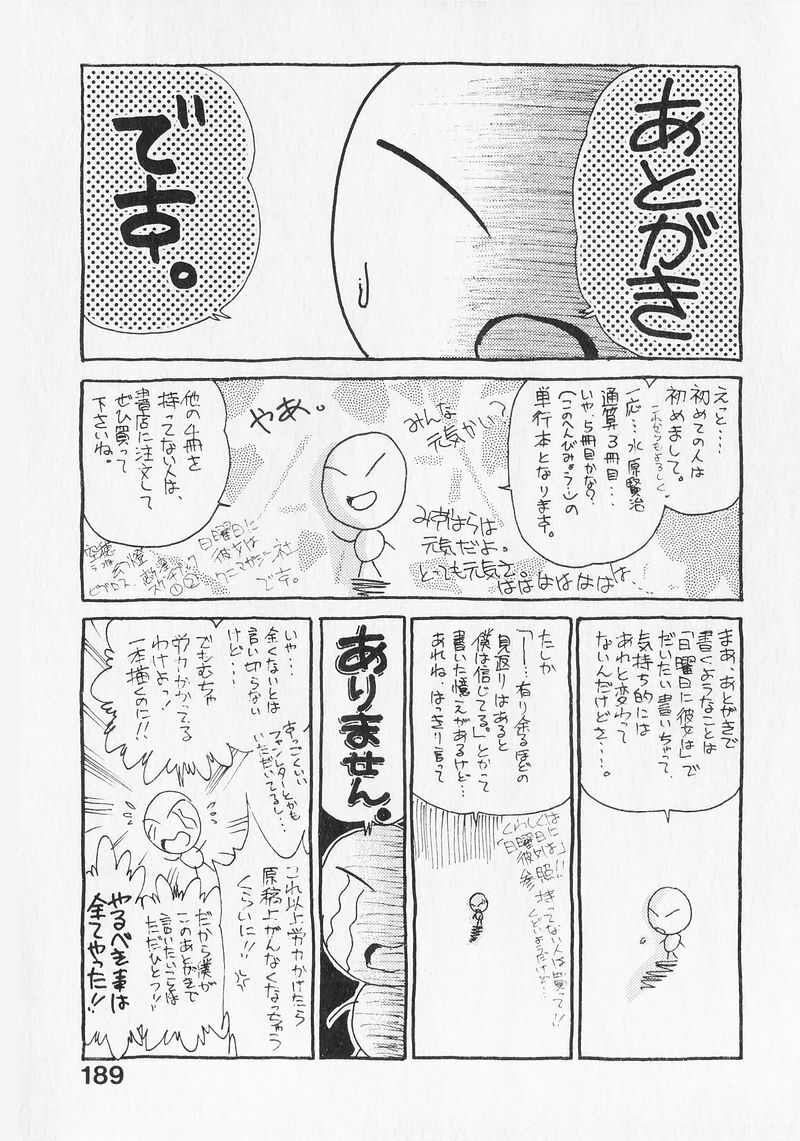 あとがき
です。
えっと・・・
初めての人は
初めまして。
これからもよろしく。
一応・・・水原賢治
通算3冊目・・・
いや、5冊目かな？
（このへんびみょう・・・）の
単行本となります。
みんな
元気かい？
やあ。
みずはらは
元気だよ。
とっても元気さ
ぱぱぱぱぱぱぱ・・・
他の4冊を
持ってない人は、
書店に注文して
ぜひ買って
下さいね。
日曜日に
彼女は
ワニマガジン社
です。
まあ、あとがきで
書くようなことは
「日曜日に彼女は」で
だいたい書いちゃって、
気持ち的には
あれと変わって
ないんだけどさ・・・。
たしか
「ー・・・有り余るほどの
見返りはあると
僕は信じてる。」とかって
書いた憶えがあるけど・・・
あれね、はっきり言って
くわしくは
「日曜日には
彼女は」
参照!!
持ってない人は買って!!
くどいようだけど・・・
ありません。
いや・・・
全くないとは
言い切らない
けど・・・
すっごくいい
ファンレターとかも
いただいてるし・・・
でもむちゃ
労力かかってる
わけよっ!
一本描くのに!!
これ以上労力かけたら
原稿上がんなくなっちゃう
くらいに!!
だから僕が
このあとがきで
言いたいことは
ただひとつ!!
やるべき事は
全てやった!!
189